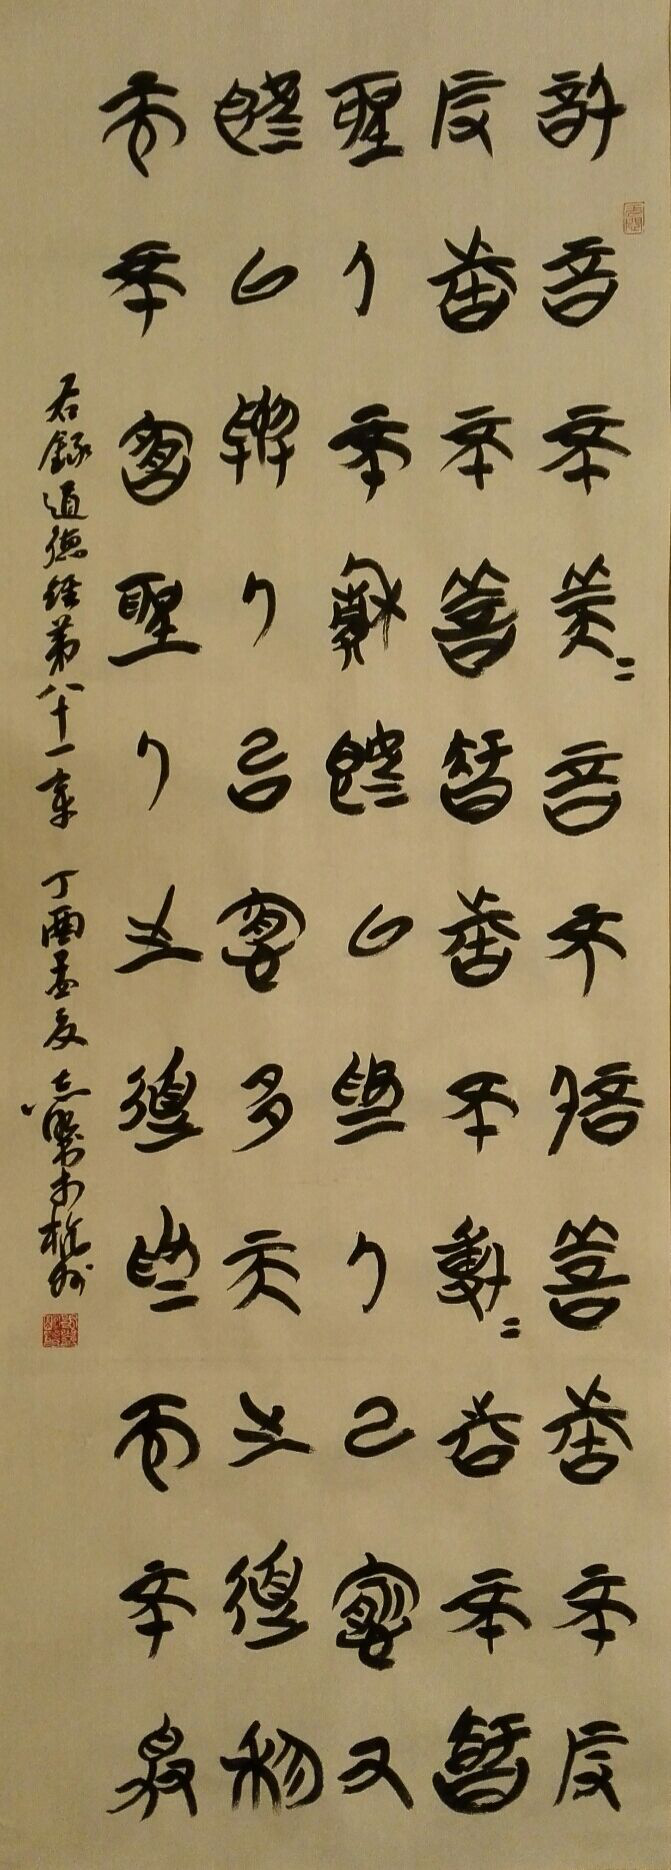 信言不美〻言不信善者不辯
辯者不善知者不博〻者不知
聖人不積既以為人己愈又
既以與人己愈多天之道利
而不害聖人之道為而不爭
右錄道德經第八十一章 丁酉孟夏 杭州